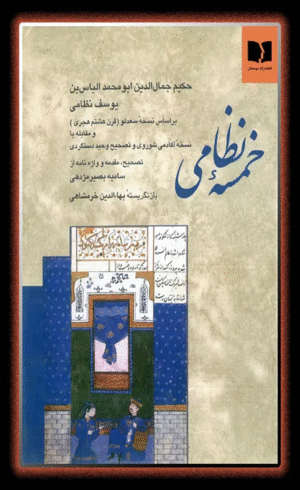 انتشارات دوستان
حکیم جمال‌الدین ابومحمد الیاس‌بن
یوسف نظامی
براساس نسخه سعدلو (قرن هشتم هجری)
و مقابله با
نسخهٔ آکادمی شوروی و تصحیح وحید دستگردی
تصحیح، مقدمه و واژه نامه از
سامیه بصیر مژدهی
بازنگریستهٔ بهاءالدین خرمشاهی
خمسهٔ نظامی